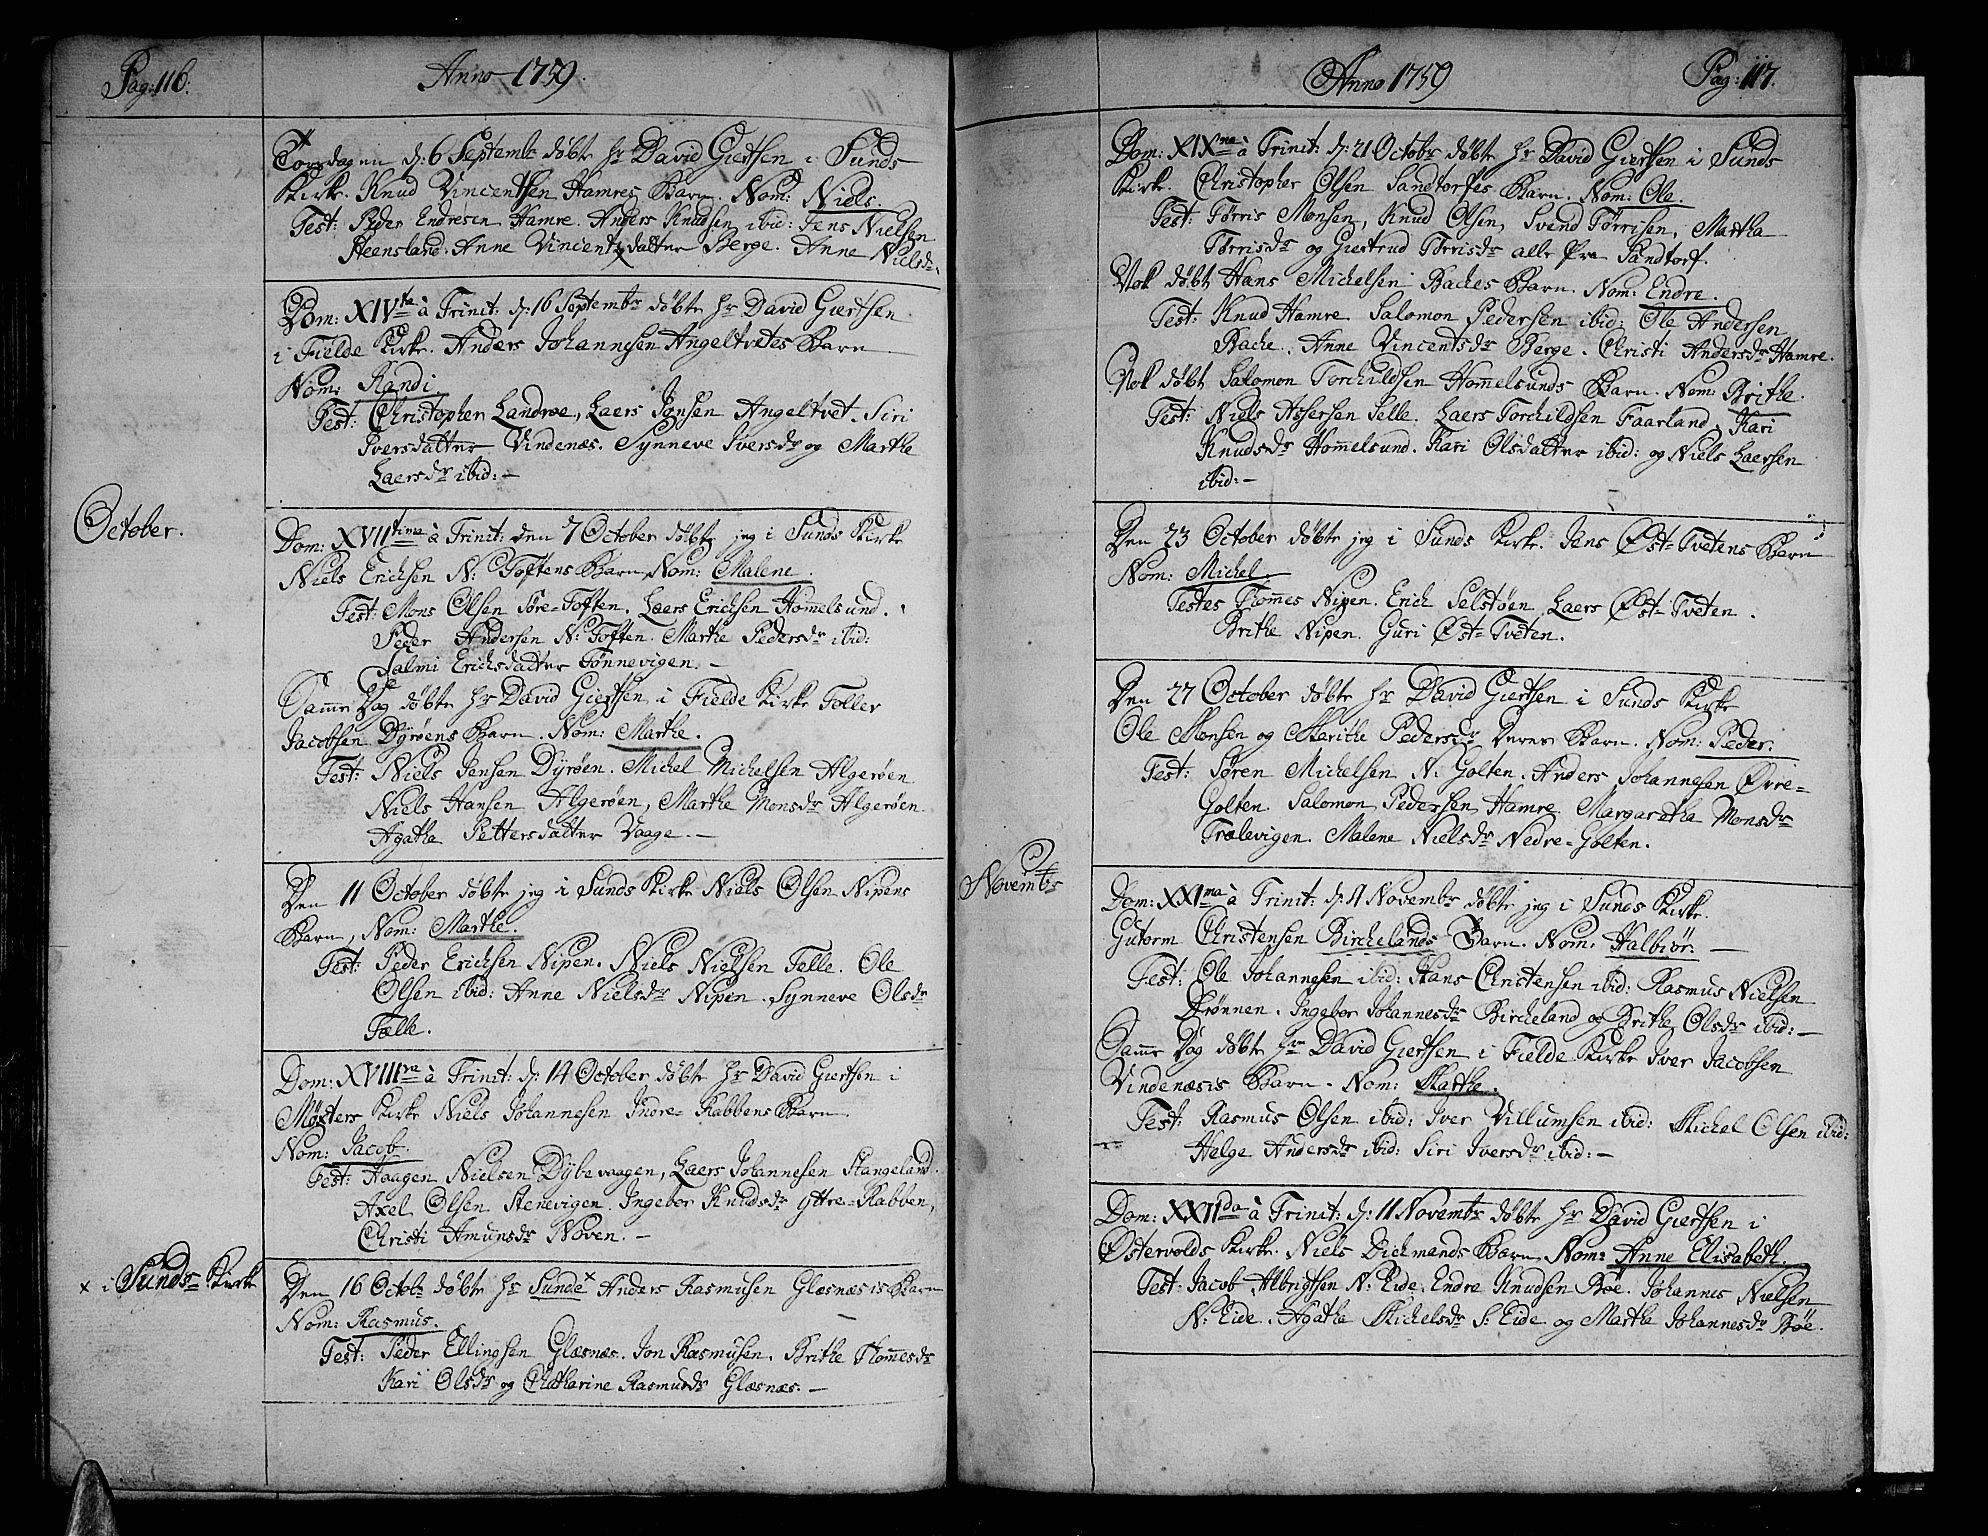 Pag: 116.
Anno 1759.
Torsdagen d: 6 Septembr døbte Hr David Giertsen i Sunds
Kirke. Knud Vincentsen Hamres Barn. Nom: Niels.
Test: Peder Endresen Hamre. Anders Knudsen ibid: Jens Nielsen
Steensland. Anne Vincentsdatter Berge. Anne Nielsdr.
Dom: XIVta à Trinit: d: 16 Septembr døbte Hr David Giertsen
i Fielde Kirke. Anders Johannesen Angeltvetes Barn
Nom: Randi
Test: Christopher Landroe, Laers Jonsen Angeltvet. Siri
Iversdatter Vindenæs. Synneve Iversdr og Marthe
Laersdr ibid: -
October.
Dom: XVIItima à Trinit: den 7 October døbte jeg i Sunds Kirke
Niels Erichsen N: Toftens Barn, Nom: Malene.
Test: Mons Olsen Søre-Toften. Laers Erichsen Hommelsund.
Peder Andersen N: Toften. Marthe Pedersdr ibid:
Salmi Erichsdatter Tønnevigen. -
Samme Dag døbte Hr David Giertsen i Fielde Kirke Toller
Jacobsen Dyrøens Barn. Nom: Marthe.
Test: Niels Jensen Dyrøen. Michel Michelsen Algerøen
Niels Hansen Algerøen, Marthe Monsdr Algerøen.
Agatha Pettersdatter Vaage. -
Den 11 October døbte jeg i Sunds Kirke Niels Olsen Nipens
Barn, Nom: Marthe.
Test: Peder Erichsen Nipen. Niels Nielsen Telle. Ole
Olsen ibid: Anne Nielsdr Nipen. Synneve Olsdr
Tælle.
Dom: XVIIIva à Trinit: d: 14 October døbte Hr David Giertsen i
Møgsters Kirke Niels Johannesen Indre-Rabbens Barn
Nom: Jacob.
Test: Haagen Nielsen Dybevaagen, Laers Johannesen Stangeland.
Axel Olsen Stenevigen. Ingebor Knudsdr Yttre-Rabben,
Christi Amunsdr Noven. -
x i Sunds Kirke
Den 16 Octobr døbte Hr Sunde x Anders Rasmusen Glæsnæsis Barn
Nom: Rasmus.
Test: Peder Ellingsen Glæsnæs. Jon Rasmusen. Brithe Thommesdr
Kari Olsdr og Chatharine Rasmusdr Glæsnæs. -
Anno 1759
Pag: 117.
Dom: XIXna à Trinit: d: 21 Octobr døbte Hr David Giertsen i Sunds
Kirke. Christopher Olsen Sandtorfes Barn. Nom: Ole.
Test: Tørris Monsen, Knud Olsen, Svend Tørrisen, Martha
Tørrisdr og Giertrud Tørrisdr alle fra Sandtorf.
Nok døbt Hans Michelsen Baches Barn. Nom: Endre.
Test: Knud Hamre Salomon Pedersen ibid: Ole Andersen
Bache. Anne Vincentsdr Berge. Christi Andersdr Hamre.
Nok døbt Salomon Torchildsen Hommelsunds Barn. Nom: Brithe.
Test: Niels Assersen Selle. Laers Torchildsen Faarland. Kari
Knudsdr Hommelsund. Kari Olsdatter ibid: og Niels Laersen
ibid: -
Den 23 October døbte jeg i Sunds Kirke. Jens Øst-Tvetens Barn
Nom: Michel.
Testes Thommes Nipen. Erich Selstøen. Laers Øst-Tveten.
Brithe Nipen. Guri Øst-Tveten.
Den 27 October døbte Hr David Giertsen i Sunds Kirke
Ole Monsen og Marithe Pedersdr Deres Barn. Nom: Peder.
Test: Søren Michelsen N: Golten. Anders Johannesen Øvre-
Golten. Salomon Pedersen Hamre. Margaretha Monsdr
Trælevigen. Malene Nielsdr Nedre-Golten.
Novembr
Dom: XXIma à Trinit: d: 4 Novembr døbte jeg i Sunds Kirke.
Gutorm Christensen Birchelands Barn. Nom: Halbiør. -
Test: Ole Johannesen ibid: Hans Christensen ibid: Rasmus Nielsen
Drønnen. Ingebor Johannesdr Bircheland og Brithe Olsdr ibid: -
Samme Dag døbte Hr David Giertsen i Fielde Kirke Iver Jacobsen
Vindenæsis Barn. Nom: Marthe.
Test: Rasmus Olsen ibid: Iver Villumsen ibid: Michel Olsen ibid:
Helge Andersdr ibid: Siri Iversdr ibid: -
Dom: XXIIda à Trinit: d: 11 Novembr døbte Hr David Giertsen i
Østervolds Kirke. Niels Dichmands Barn. Nom: Anne Elisabeth.
Test: Jacob Albrigtsen N: Eide. Endre Knudsen Bøe. Johannes Nielsen
N: Eide. Agatha Michelsdr S: Eide og Martha Johannesdr Bøe.